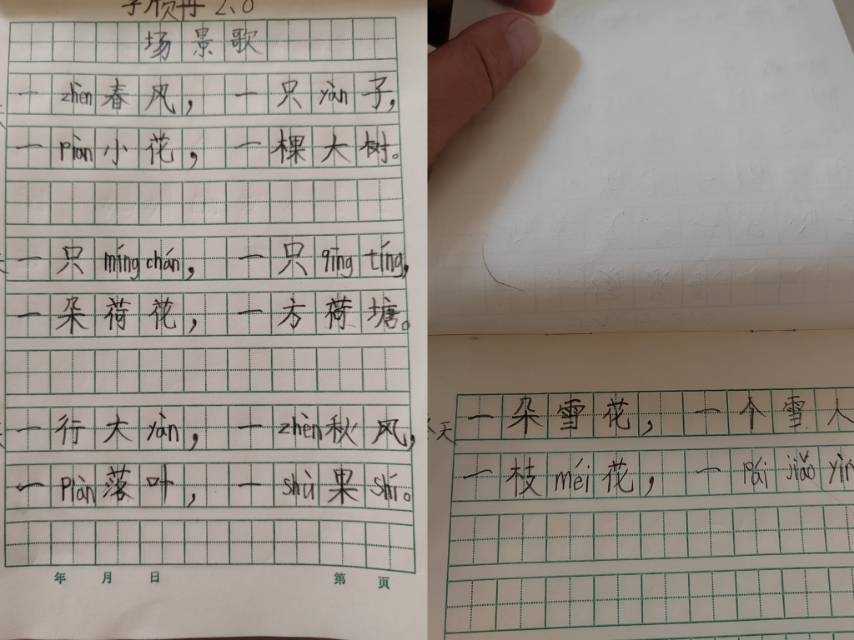 2.0
场景歌
一zhèn春风，一只yàn子，
一piàn小花，一棵大树。
一只míng chán，一只qīng tíng，
一朵荷花，一方荷塘。
一行大yàn，一zhèn秋风，
一piàn落叶，一shù果shí。
年 月 日 第 页
天一朵雪花，一个雪人
一枝méi花，一pái jiǎo yìn